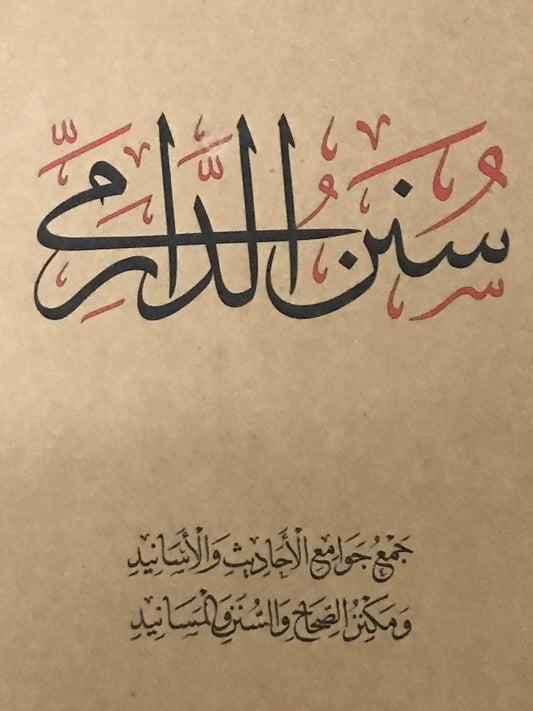 سُنَنُ الدَّارِمِيِّ
جَمْعُ جَوَامِعِ الْأَحَادِيثِ وَالْأَسَانِيدِ
وَمَكْنِزُ الصِّحَاحِ وَالسُّنَنِ وَالْمَسَانِيدِ